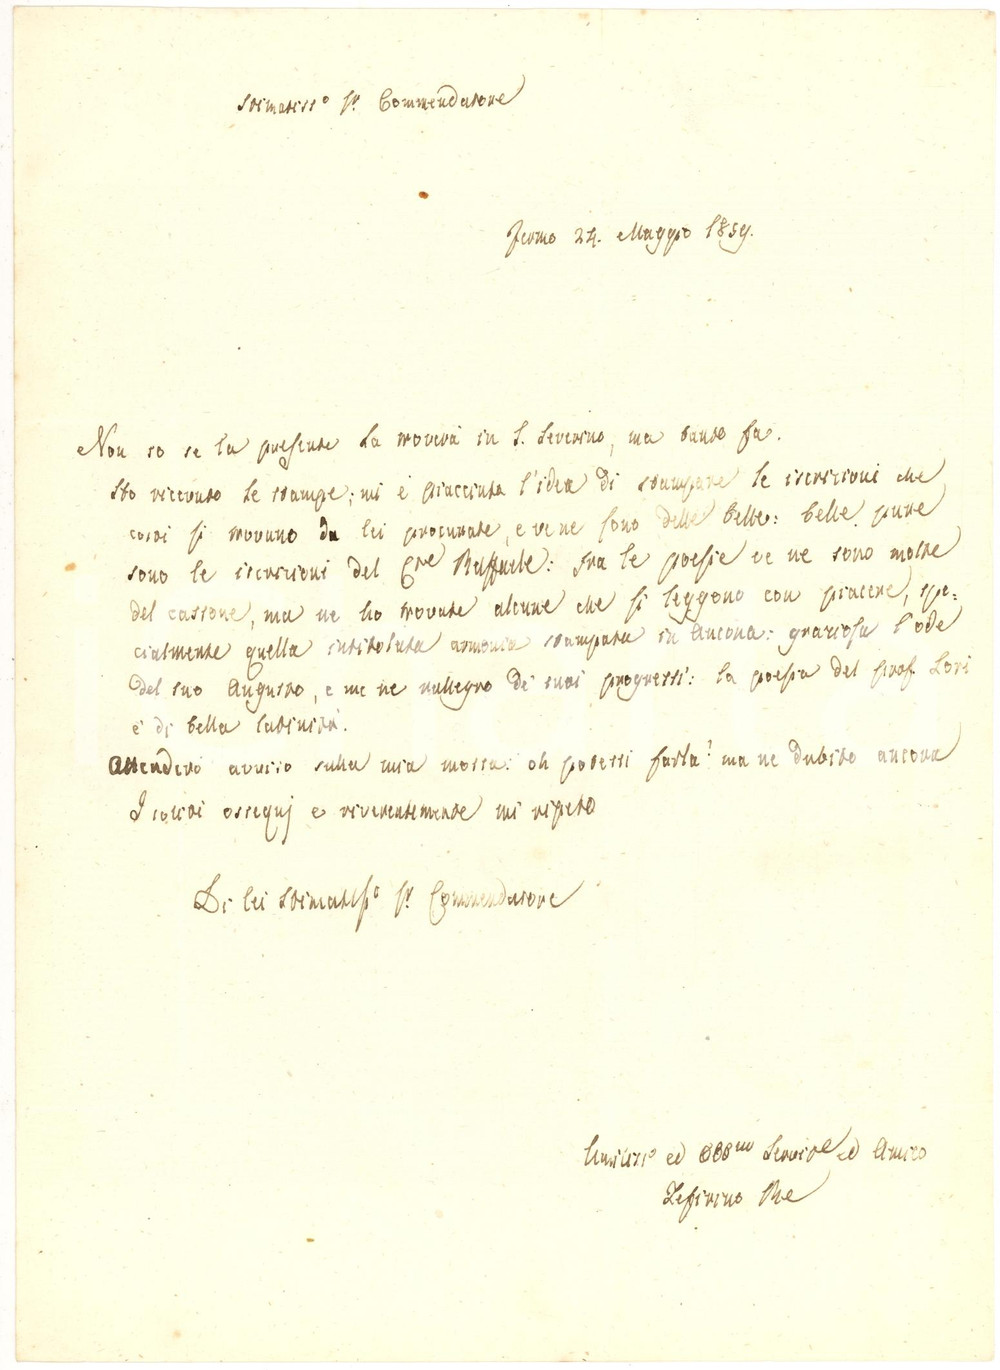 Stimatiss.o Sr. Commendatore
Fermo 24. Maggio 1859.
Non so se la presente la troverà in S. Severino, ma tanto fa.
Ho ricevuto le stampe; mi è piacciuta l'idea di stampare le iscrizioni che
costì si trovano da lei procurate, e ve ne sono delle belle: belle pure
sono le iscrizioni del Cre Raffaele: fra le poesie ve ne sono molte
del cassone, ma ne ho trovate alcune che si leggono con piacere, spe:
cialmente quella intitolata armonia stampata in Ancona: graziosa l'ode
del suo Augusto, e me ne rallegro de' suoi progressi: la poesia del prof. Lori
è di bella latinità.
Attenderò avviso sulla mia mossa: oh potessi farla! ma ne dubito ancora
I soliti ossequj e riverentemente mi ripeto
Di lei Stimatiss.o Sr. Commendatore
Umiliss.o ed Obbmo Servitre ed Amico
Zefirino Re